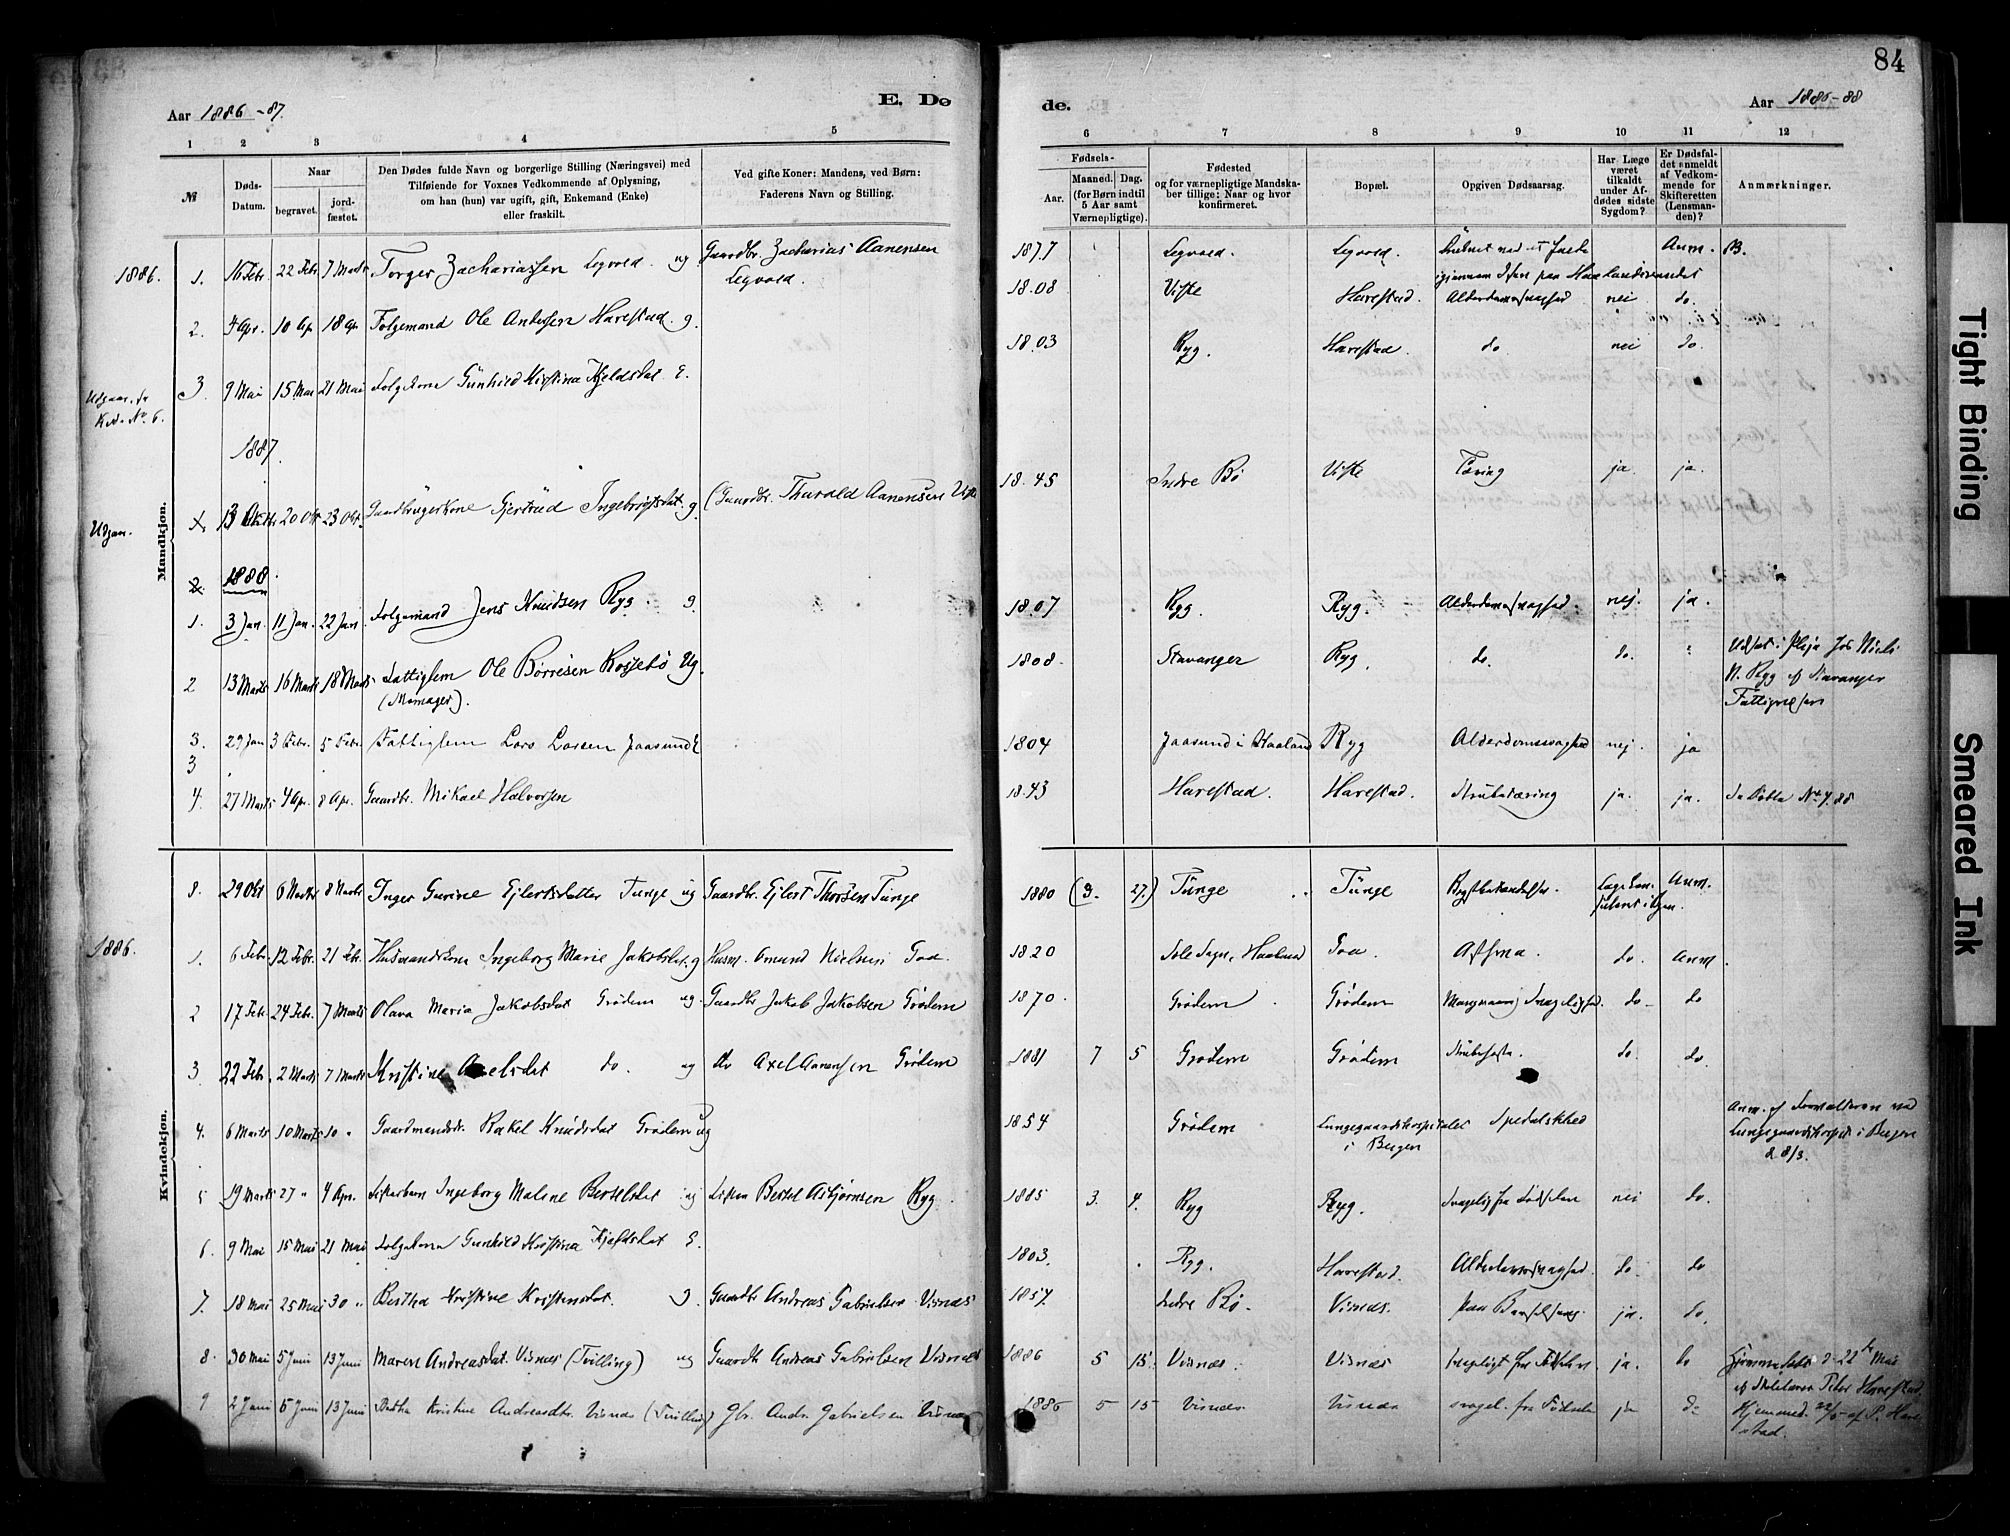 84
Aar 1886-87.
E. Dø
de.
Aar 1886-88
1 2 3 4 5
6 7 8 9 10 11 12
№
Døds-Datum.
Naar
begravet.
jord-fæstet.
Den Dødes fulde Navn og borgerlige Stilling (Næringsvei) med
Tilføiende for Voxnes Vedkommende af Oplysning,
om han (hun) var ugift, gift, Enkemand (Enke)
eller fraskilt.
Ved gifte Koner: Mandens, ved Børn:
Faderens Navn og Stilling.
Fødsels-
Aar.
Maaned. Dag.
(for Børn indtil
5 Aar samt
Værnepligtige).
Fødested
og for værnepligtige Mandska-
ber tillige: Naar og hvor
konfirmeret.
Bopæl.
Opgiven Dødsaarsag.
Har Læge
været
tilkaldt
under Af-
dødes sidste
Sygdom?
Er Dødsfal-
det anmeldt
af Vedkom-
mende for
Skifteretten
(Lensman-
den)?
Anmærkninger.
Mandkjøn.
1886. 1. 16 Febr. 22 Febr. 7 Marts Torger Zachariassen Legvold ug Gaardbr. Zacharias Aanensen Legvold. 1877 Legvold. Legvold. Anm. B.
2. 4 Apr. 10 Ap. 18 Apr. Folgemand Ole Andersen Harestad g. 1808 Viste Harestad. Alderdomssvaghed nei do.
3. 9 Mai 15 Mai 21 Mai Folgekone Gunhild Kristina Kjeldsdat. E. 1803 Ryg. Harestad. do nei do.
No. 6.
1887.
Udgaar. 13 Oktbr 20 Okt 23 Okt. Gaardbrugerkone Gjertrud Ingebrigtsdat. g. (Gaardbr. Thorvald Aanensen Viste 1845 Indre Bø Viste Tæring ja. ja.
2. 1888.
1. 3 Jan. 11 Jan. 22 Jan Folgemand Jens Knudsen Ryg. g. 1807 Ryg. Ryg. Alderdomssvaghed. nej. ja.
2 13 Marts 16 Marts 18 Marts Fattiglem Ole Børresen Rossebø Ug. 1808. Stavanger Ryg. do. do. "
N. Ryg af Stavanger
Fattigvæsen
3. 29 Jan 3 Febr. 5 Febr. Fattiglem Lars Larsen Jaasund E 1804 Jaasund i Haaland Ryg Alderdomssvaghed nej. ja
3
4. 27 Marts 4 Apr. 8 Apr. Gaardbr. Mikael Halvorsen 1843 Harestad. Harestad. Strubetæring ja. ja.
Kvindekjøn.
8. 29 Okt 6 Novbr 8 Novbr Inger Gurine Ejlertsdatter Tunge ug Gaardbr. Ejlert Thorsen Tunge 1880 (9. 27.) Tunge Tunge Brystbetændelse. Anm.
1886. 1. 6 Febr. 12 Febr. 21 Febr. Husmandskone Ingeborg Marie Jakobsdat. g Husm. Omund Nielsen Goa. 1820 Sole Sogn, Haaland Goa. Asthma. do. Anm.
2 17 Febr. 24 Febr. 7 Marts Olava Maria Jakobsdat Grødem ug. Gaardbr Jakob Jakobsen Grødem 1870. Grødem. Grødem do. do
3. 22 Febr. 2 Marts 7 Marts Kristine Axelsdat do. ug do Axel Aanensen Grødem 1881 7 5 Grødem Grødem Strubehoste. do. do.
4. 6 Marts 10 Marts 10 " Gaardmandsdr. Rakel Knudsdat Grødem ug 1854 Grødem Lungegaardshospitalet i Bergen Spedalskhed Anm. af Forvalteren ved Lungegaardshospit. i Bergen d 8/3.
5 19 Marts 27 " 4 Apr. Fiskerbarn Ingeborg Malene Bertelsdat ug Fisker Bertel Asbjørnsen Ryg. 1885 3. 4. Ryg Ryg. Svagelig fra Fødselen nei do.
6. 9 Mai 15 Mai 21 Mai Folgekone Gunhild Kristina Kjeldsdat E. 1803. Ryg. Harestad. Alderdomssvaghed. do. do
7. 18 Mai 25 Mai 30 " Bertha Kristine Kristensdat. g. Gaardbr Andreas Gabrielsen Visnæs 1857. Indre Bø. Visnæs. paa Barselseng. ja. do.
8. 30 Mai 5 Juni 13 Juni Maren Andreasdat. Visnæs (Tvilling) ug Gaardbr Andreas Gabrielsen Visnæs 1886 5 15. Visnæs. Visnæs svageligt fra Fødselen. ja. do Hjemmedøbt d. 22de Mai af Skolelærer Peder Harestad.
9 2 Juni 5 Juni 13 Juni Bertha Kristine Andreasdtr. Visnæs (Tvilling) Gbr. Andr. Gabrielsen Visnæs 1886 5 15 Visnæs Visnæs svagel. fra Fødselen ja do Hjemmed. 22/5 af P. Harestad.
Tight Binding
Smeared Ink